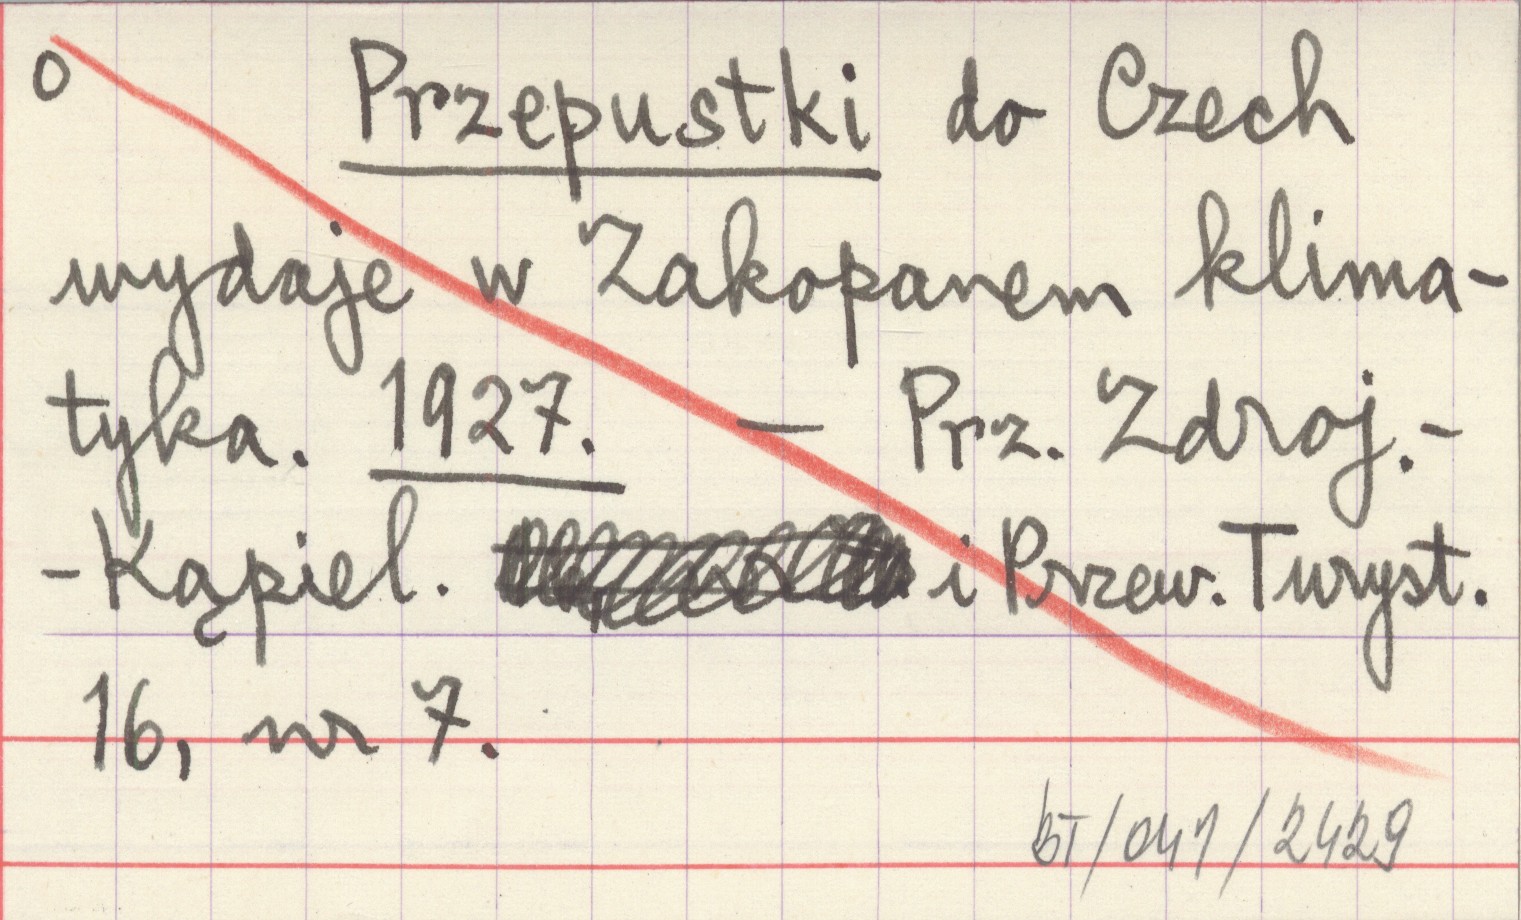 o Przepustki do Czech
wydaje w Zakopanem klima-
tyka. 1927. — Prz. Zdroj.-
-Kąpiel. i Przew. Turyst.
16, nr 7.
BT/047/2429